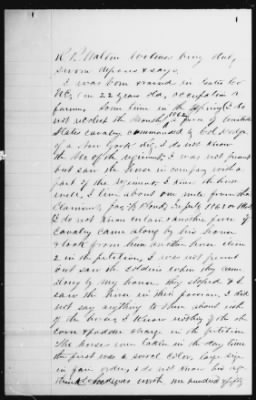 R. P. Walton witness being duly
sworn deposes & says,
I was born & raised in Gates Co
N.C. am 22 years old, occupation a
farmer Some time in the spring I do
not recolect the month 1862 a force of United
States cavalry commanded by Col Dodge
of a New York Reg. I do not know
the No of the regiment, I was not present
but saw the horse in company with a
part of the regiment I knew the horse
well, I live about one mile from the
claimant,
I do not know certain another force of
cavalry came along by his house
& took from him another horse item
2 in the petition, I was not present
but saw the soldiers when they came
along by my house they stoped & I
saw the horse in their possession, I did
not say anything to them about either
of the horses, I know nothing of the
corn & fodder charge in the petition
The horses were taken in the day
the first was a sorrel color, large size
in fair order, & do not know his age
think he was worth one hundred & fifty